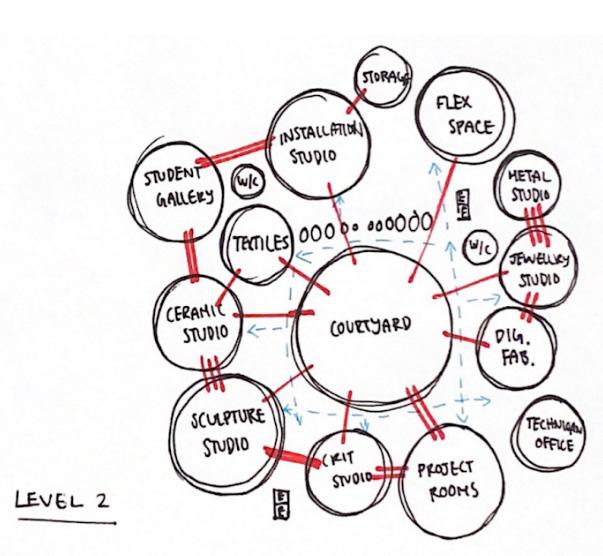 STORAGE
FLEX
SPACE
INSTALLATION
STUDIO
STUDENT
GALLERY
W/C
METAL
STUDIO
TEXTILES
W/C
JEWELLRY
STUDIO
CERAMIC
STUDIO
COURTYARD
DIG.
FAB.
SCULPTURE
STUDIO
TECHNICIAN
OFFICE
CRIT
STUDIO
PROJECT
ROOMS
LEVEL 2